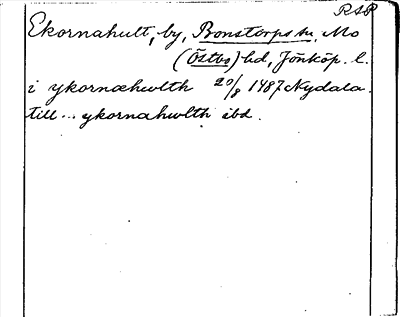 RAP
Ekornahult, by, Bonstorps sn. Mo
(Östbo) hd, Jönköp. l.
i ykornæhwlth 20/8 1487 Nydala.
till... ykornahwlth ibd.